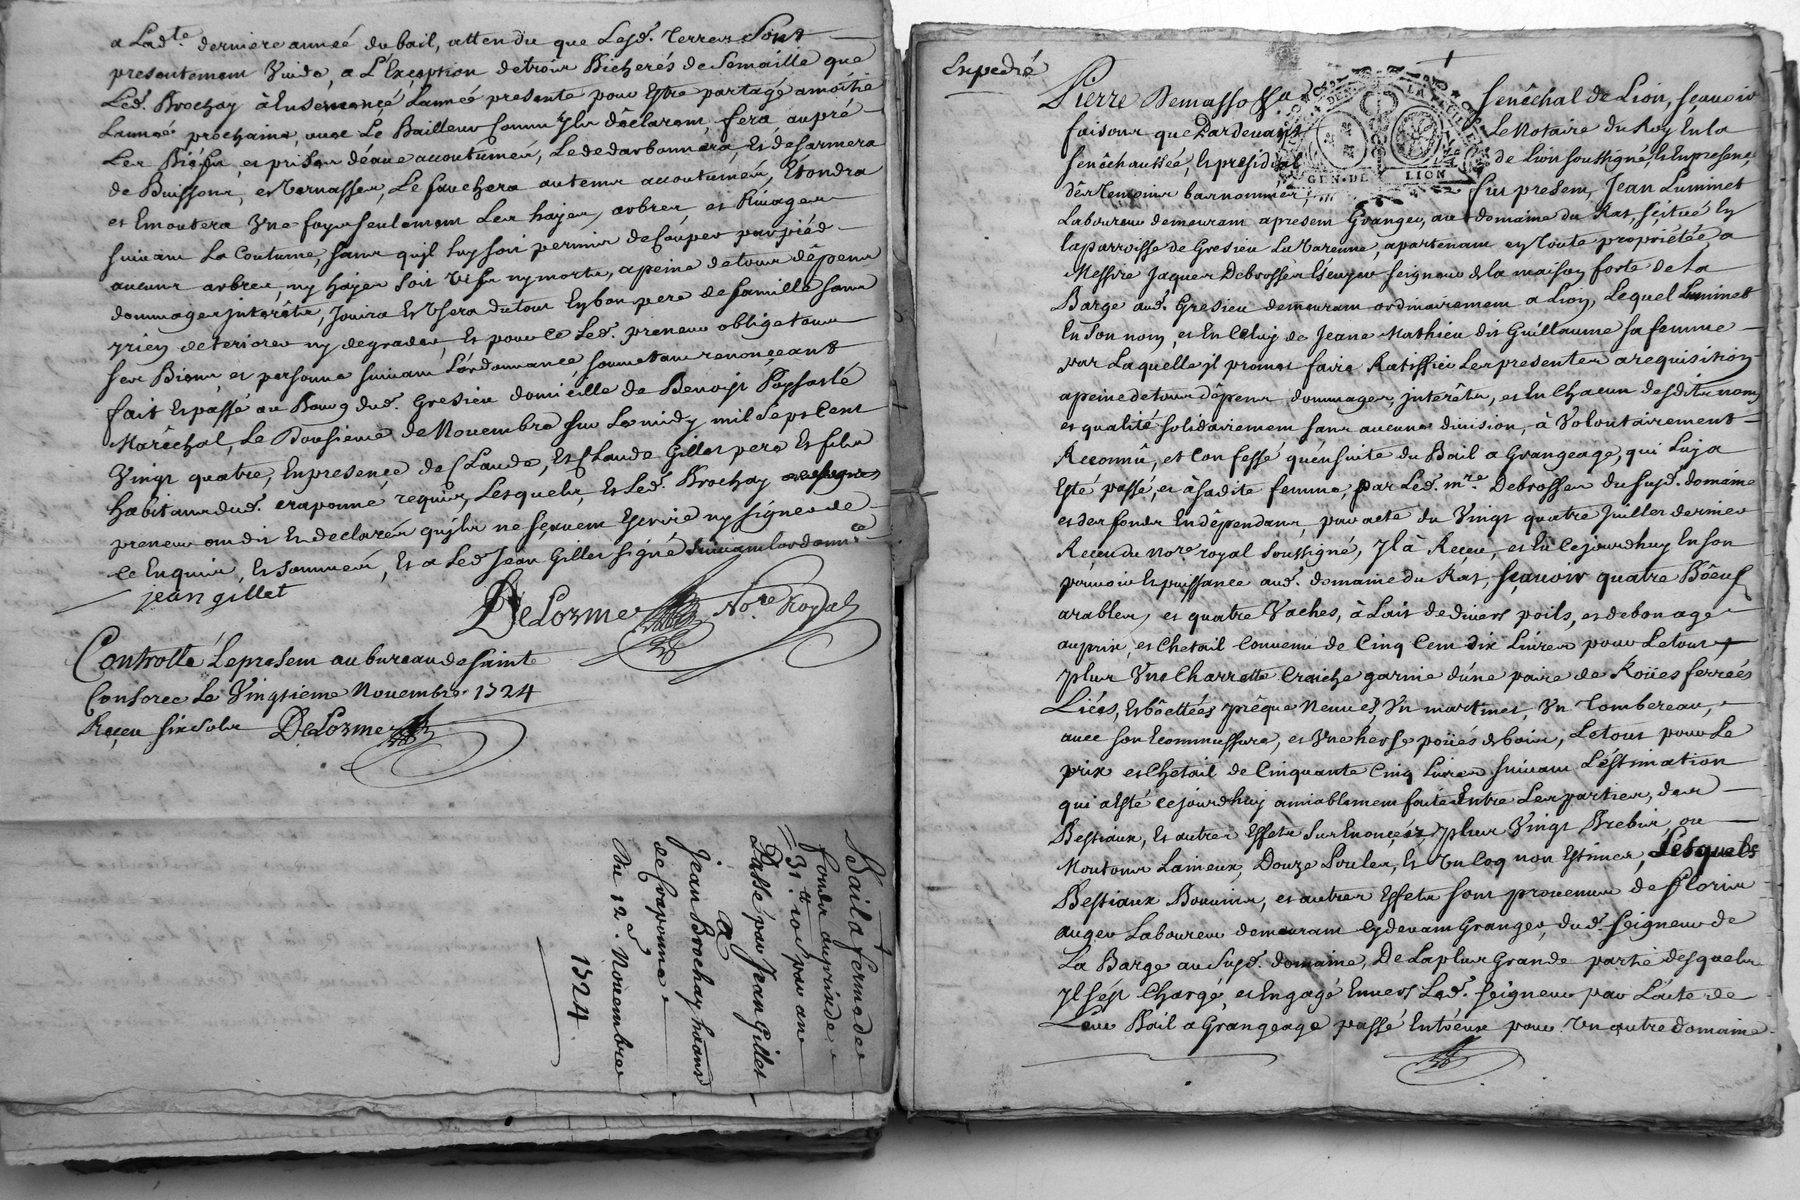 a Lad.te derniere année du bail, attendu que Lesd. terres sont
presentement Vuide, a L'Exception de trois Bicherés de Semaille que
Led. Brochay à Ensemencé L'année presente pour Estre partagé a moitié
L'année prochaine, avec Le Bailleur comme Ils déclarent, fera au pré
Les Biefs, et prises d'eaue accoutumés, Le dedarbonnera, Et desarmera
de Buissons, et Vernasses, Le fauchera au tems accoutumés, Etondra
et Emoutera Une foys seulement Les hayes, arbres et Rivages
suivant La Coutume, sans qu'il luy soit permis de Couper par pied
aucuns arbres, ny hayes soit vifs ny morts, a peine de tous dépens
dommages interêts, Jouira Et Usera du tout En bon pere de famille sans
y rien deteriorer ny degrader, Et pour ce Led. preneur oblige tous
ses Biens, et personne suivant L'ordonnance, soumetant renonçeant
fait Et passé au Bourg dud. Gresieu domicille de Benoist
Maréchal, Le Dousieme de Novembre sur Le midy mil Sept Cent
Vingt quatre, En presence de Claude, Et Claude Gillet pere Et fils
habitans dud. Craponne requis, Lesquels, Et Led. Brochay
preneur ont dit Et declarés qu'ils ne sçavent Escrire ny signer de
ce Enquis, Et sommés, Et a Led. Jean Gillet signé suivant lordonn.ce
jean gillet
DeLorme No.re Royal
Controllé Le present au bureau de Sainte
Consorce Le Vingtieme Novembre 1724
Reçeu six sols DeLorme
Bail a ferme de
fonds au prix de
31.tt 10.s par an
Passé par Jean Gillet
a
Jean Brochay habitans
de Craponne
du 12.e Novembre
1724
Expedié
Pierre Demasso Sénéchal de Lion, sçavoir
faisons que Pardevant Le Notaire du Roy En la
senéchaussée, Et presidial de Lion soussigné, Et En presence
des temoins bas nommés, fut present, Jean Luminet
Laboureur demeurant a present Granger, au domaine du Rat, scitué En
la parroisse de Gresieu La Varenne, apartenant en toute propriétée, a
Messire Jaques Debrosses Escuyer seigneur de la maison forte de La
Barge aud. Gresieu demeurant ordinairement a Lion, Lequel Luminet
En son nom, et En Celuy de Jeane Mathieu dit Guillaume sa femme
par Laquelle il promet faire Ratiffier Les presentes a requisition
a peine de tous dépens dommages, interêts, et En Chacun desdits noms
et qualité solidairement sans aucune division, à Volontairement
Reconnû, et Confessé qu'ensuite du Bail a Grangeage, qui Luy a
Esté passé, et à sadite femme, par Led. m.re Debrosses du susd. domaine
et des fonds En dépendans, par acte du Vingt quatre Juillet dernier
Reçeu du No.re royal soussigné, Il à Reçeu, et Eu Cejourdhuy En son
pouvoir Et puissance aud. domaine du Rat, sçavoir quatre Bôeufs
arables, et quatre Vaches, à Lait de divers poils, et de bon age
au prix, et Chetail Convenu de Cinq Cent dix Livres pour Le tout
plus Une Charrette Craiche garnie d'une paire de Roües ferrées
Liées, Et bôettées presque Neuves, Un martinet, Un Tombereau,
avec son Ecommussure, et Une herse de bois, Le tout pour Le
prix et Chetail de Cinquante Cinq Livres suivant L'estimation
qui a Esté cejourdhuy amiablement faite Entre Les parties, des
Bestiaux, Et autres Effets sus Enoncés, plus Vingt Brebis, ou
Moutons Laineux, Douze Poules, Et Un Coq non Estimés, Lesquels
Bestiaux Bovins, et autres Effets sont provenus de Floris
auger Laboureur demeurant cy devant Granger, dud. seigneur de
La Barge au susd. domaine, De La plus Grande partie desquels
Il s'est Chargé, et Engagé Envers Led. seigneur par L'acte de
Leur Bail a Grangeage passé Entreux pour Un autre domaine